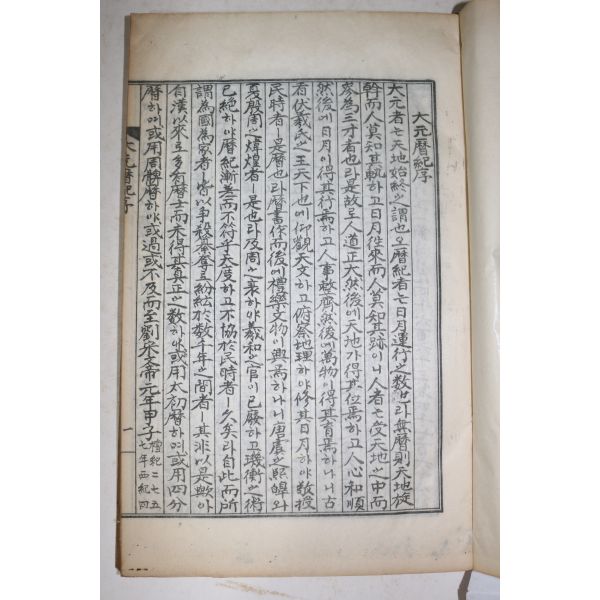 大元曆紀序
大元者는天地始終之謂也오曆紀者는日月運行之數也라無曆則天地旋
幹而人莫知其軌하고日月往來而人莫知其跡이니人者는受天地之中而
參為三才者也라是故로人道正大然後에天地가得其位焉하고人心和順
然後에日月이得其行焉하고人事整齊然後에萬物이得其育焉하나니古
者伏羲氏之王天下也에仰觀天文하고俯察地理하야修其日月하야敬授
民時者ㅣ是曆也라曆書作而後에禮樂文物이興焉하나니唐虞之熙皥와
夏殷周之煒煌者ㅣ是也라及周之衰하야羲和之官이已廢하고璣衡之術
已絶하야曆紀漸差而不符乎天度하고不協於民時者ㅣ久矣라自此而所
謂為國為家者ㅣ皆以爭殺簒奪로紛紜於數千年之間者ㅣ其非以是歟아
自漢以來로多有曆士而未得其眞正之數하야或用太初曆하며或用四分
曆하며或用周髀曆하야或過或不及而至劉宋文帝元年甲子檀紀二七五
七年西紀四
大元曆紀序 一